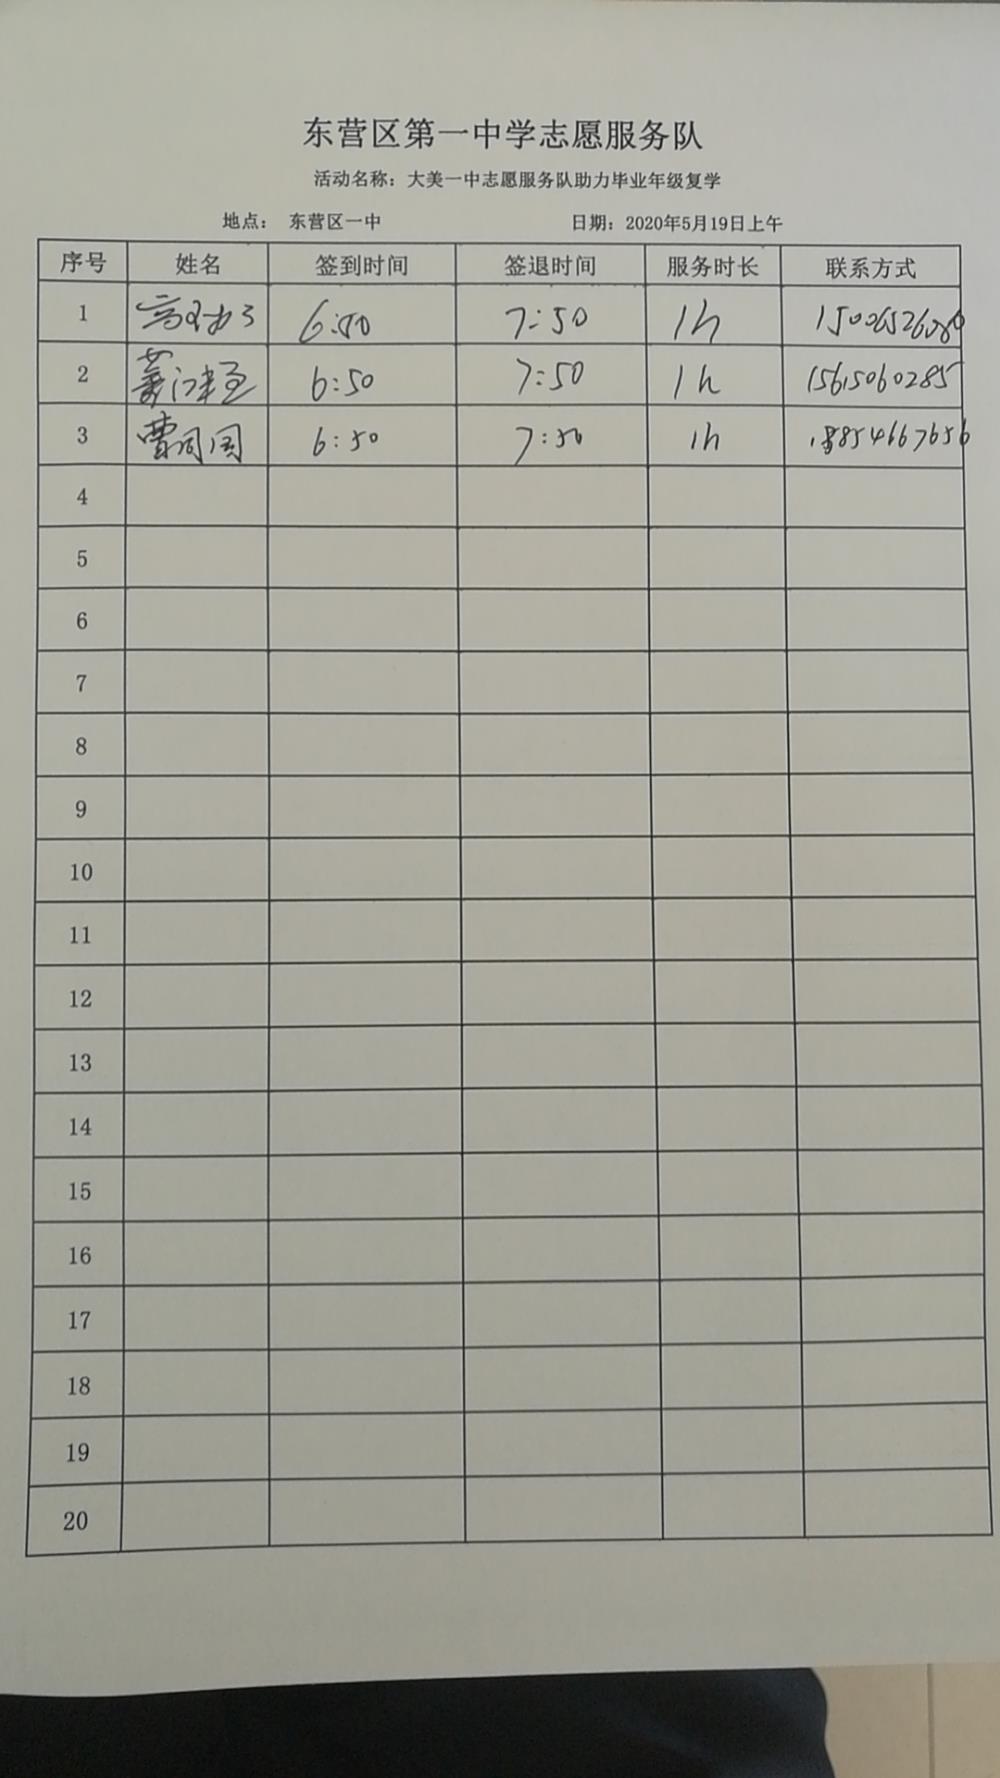 东营区第一中学志愿服务队
活动名称：大美一中志愿服务队助力毕业年级复学
地点： 东营区一中 日期：2020年5月19日上午
序号 姓名 签到时间 签退时间 服务时长 联系方式
1 6:50 7:50 1h 15006526080
2 6:50 7:50 1h 15615060285
3 曹同国 6:50 7:50 1h 18854667656
4
5
6
7
8
9
10
11
12
13
14
15
16
17
18
19
20